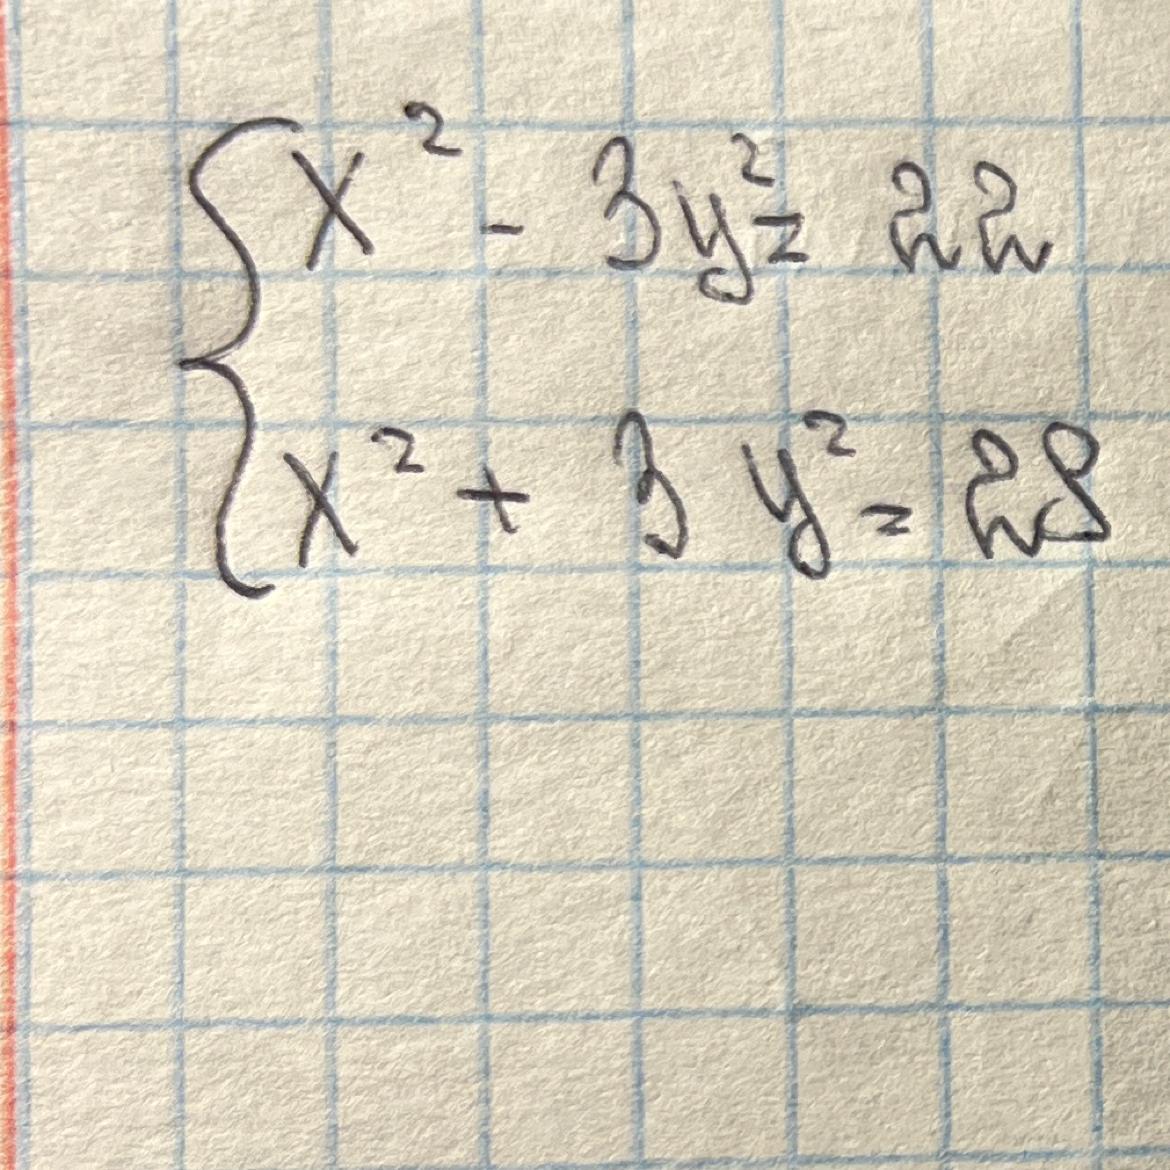 x² - 3y² = 22
x² + 3y² = 28